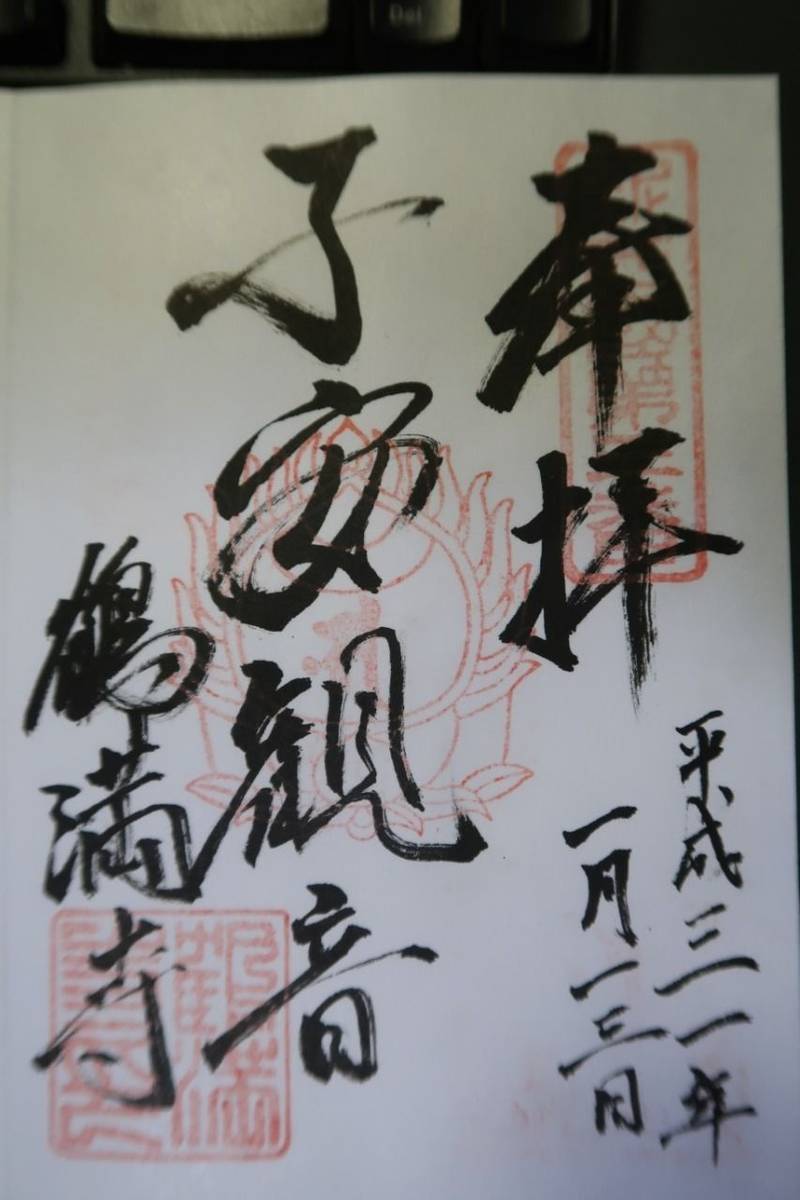 Del
奉拝
平成三一年
一月一三日
子安観音
鶴満寺